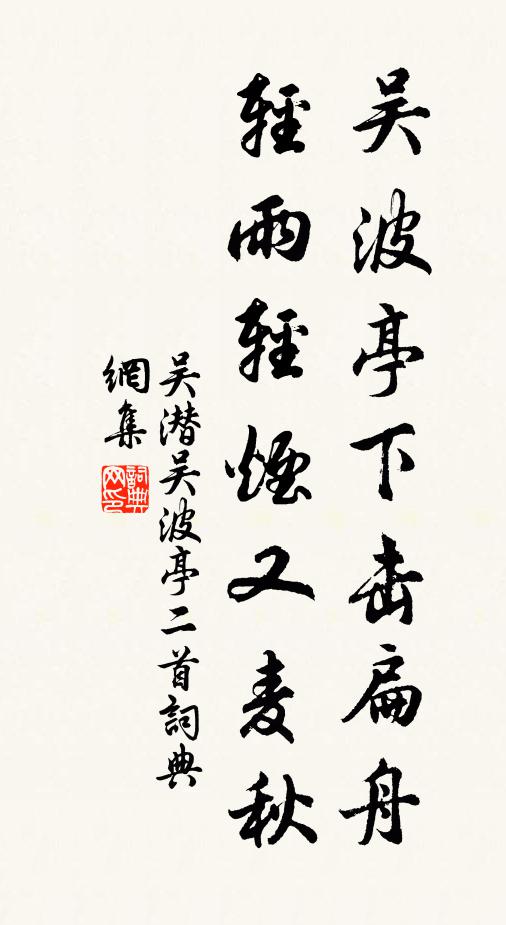 吴波亭下击扁舟
輕雨輕煙又麦秋
吴潜吴波亭二首詞典
網集
詞典
网印